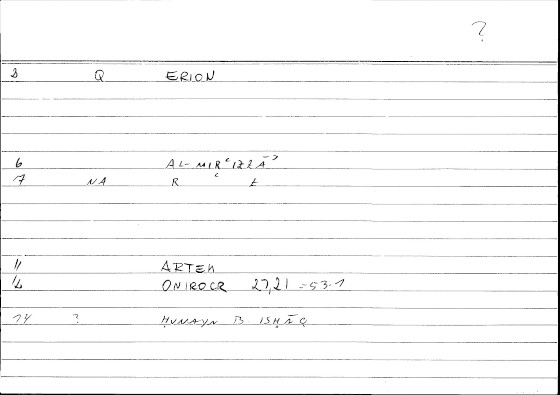 ?
8 Q ERION
6 AL-MIRʿIZZĀʾ
7 NA R ʿ
11 ARTEM
12 ONIROCR 27,21 = 53.1
14 ? ḤUNAYN B ISḤĀQ